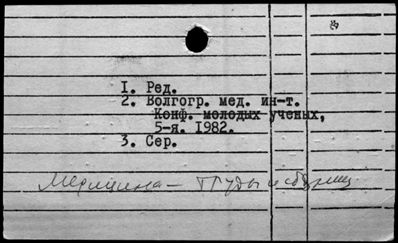 1. Ред.
2. Волгогр. мед. ин-т.
Конф. молодых ученых,
5-я. 1982.
3. Сер.
Медицина — Труды и сборниц